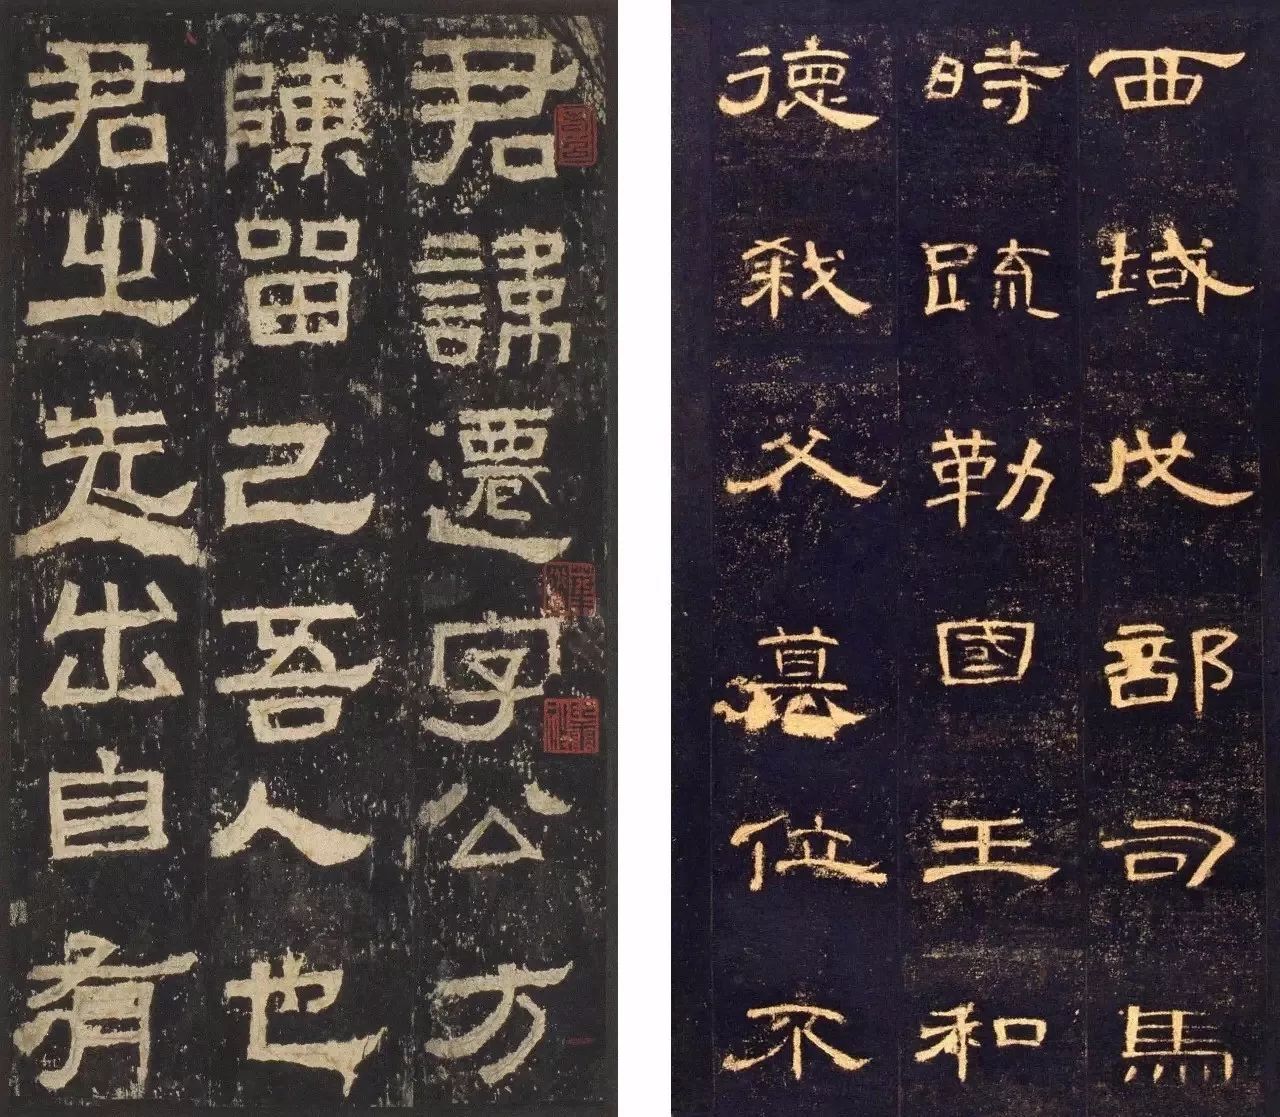 君諱遷字公方
陳留己吾人也
君之先出自有
西域戊部司馬
時疏勒國王和
德弒父篡位不